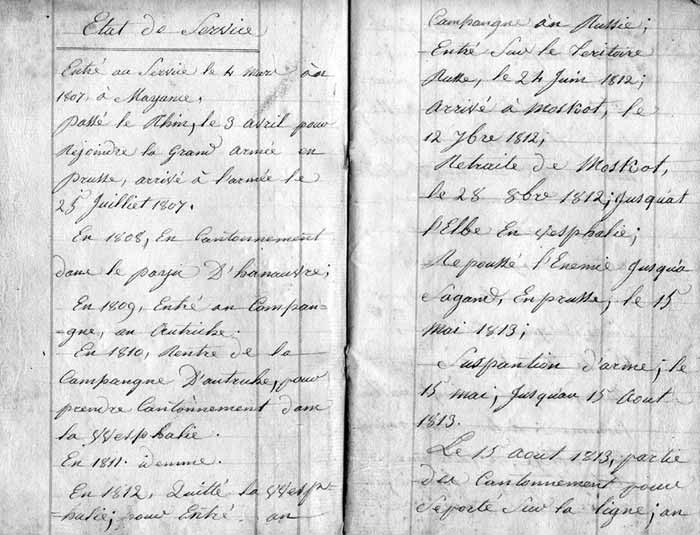 Etat de Service
Entré au Service le 4 mars àn
1807, à Mayance.
Passé le Rhin, le 3 avril pour
Rejoindre la Grand armée en
Prusse, arrivé à l'armée le
25 Juilliet 1807.
En 1808, En Cantonnement
dans le payis D'hanauvre;
En 1809, Entré an Campan=
=gne, an Autriche.
En 1810, Rentré de la
Campangne D'autriche, pour
prendre Cantonnement dans
la Wesphalie.
En 1811. idemme.
En 1812, Quitté la Wesp=
halie; pour Entré an
Campangne àn Russie;
Entré Sur le Teritoire
Russe, le 24 Juin 1812;
arrivé à Moskot, le
12 7bre 1812;
Retraite de Moskot,
le 28 8bre 1812; Jusquat
l'Elbe En Vesphalie;
Repoussé l'Enemie Jusqu'à
Sagand, En prusse, le 15
Mai 1813;
Suspantion d'arme; le
15 mai, Jusqu'au 15 Aout
1813.
Le 15 aout 1813, partie
du Cantonnement pour
Se porté Sur la ligne; an